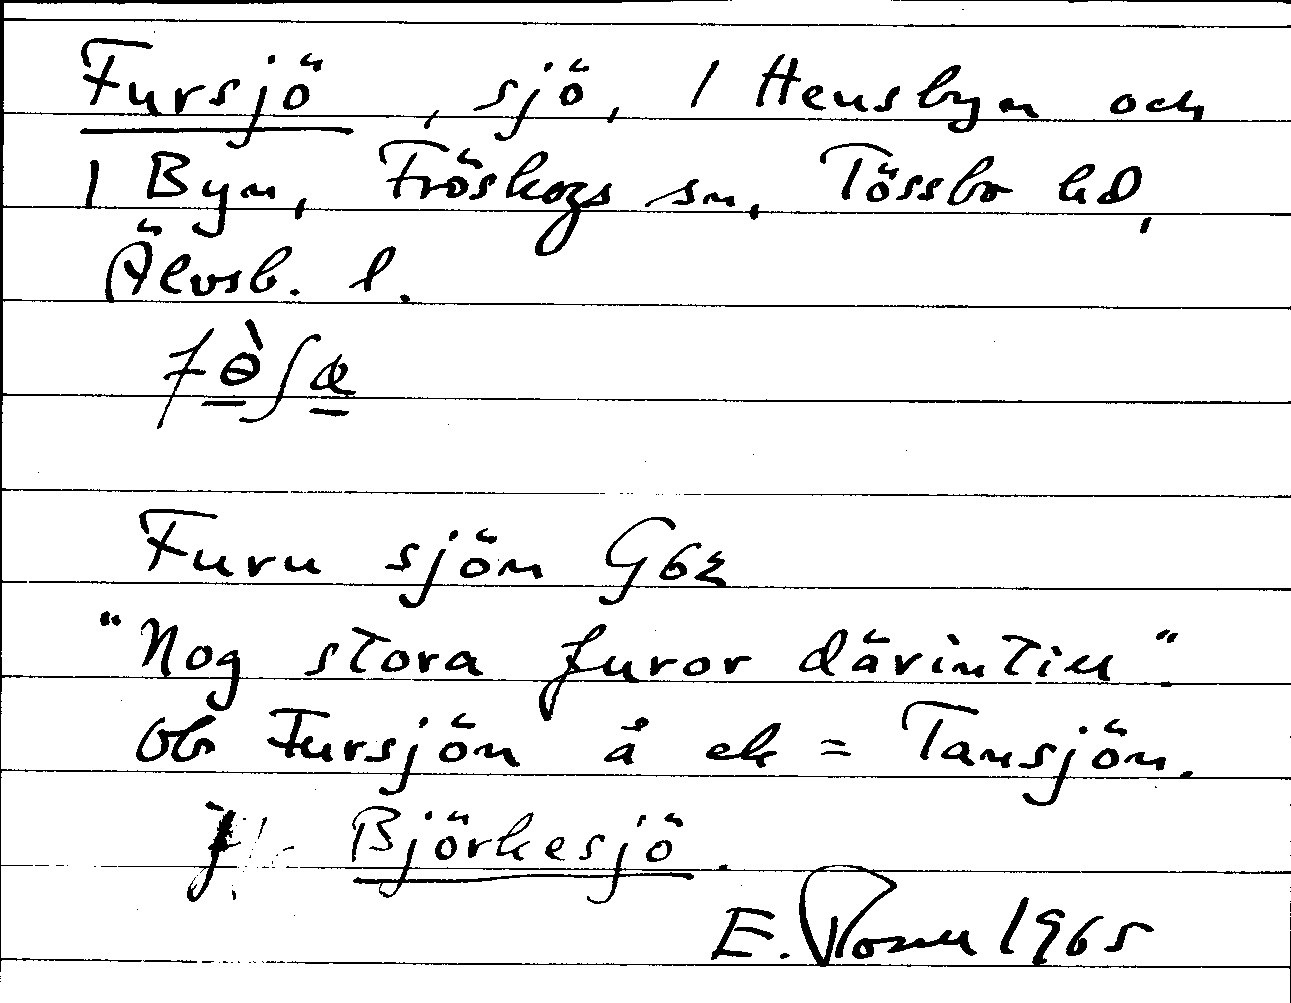 Fursjö, sjö, 1 Hensbyn och
1 Byn, Fröskogs sn, Tössbo hd,
Älvsb. l.
fɵ̀ʃæ
Furu sjön G62
"Nog stora furor därintill".
Obs Fursjön å ek = Tansjön.
Jfr Björkesjö.
E. 1965